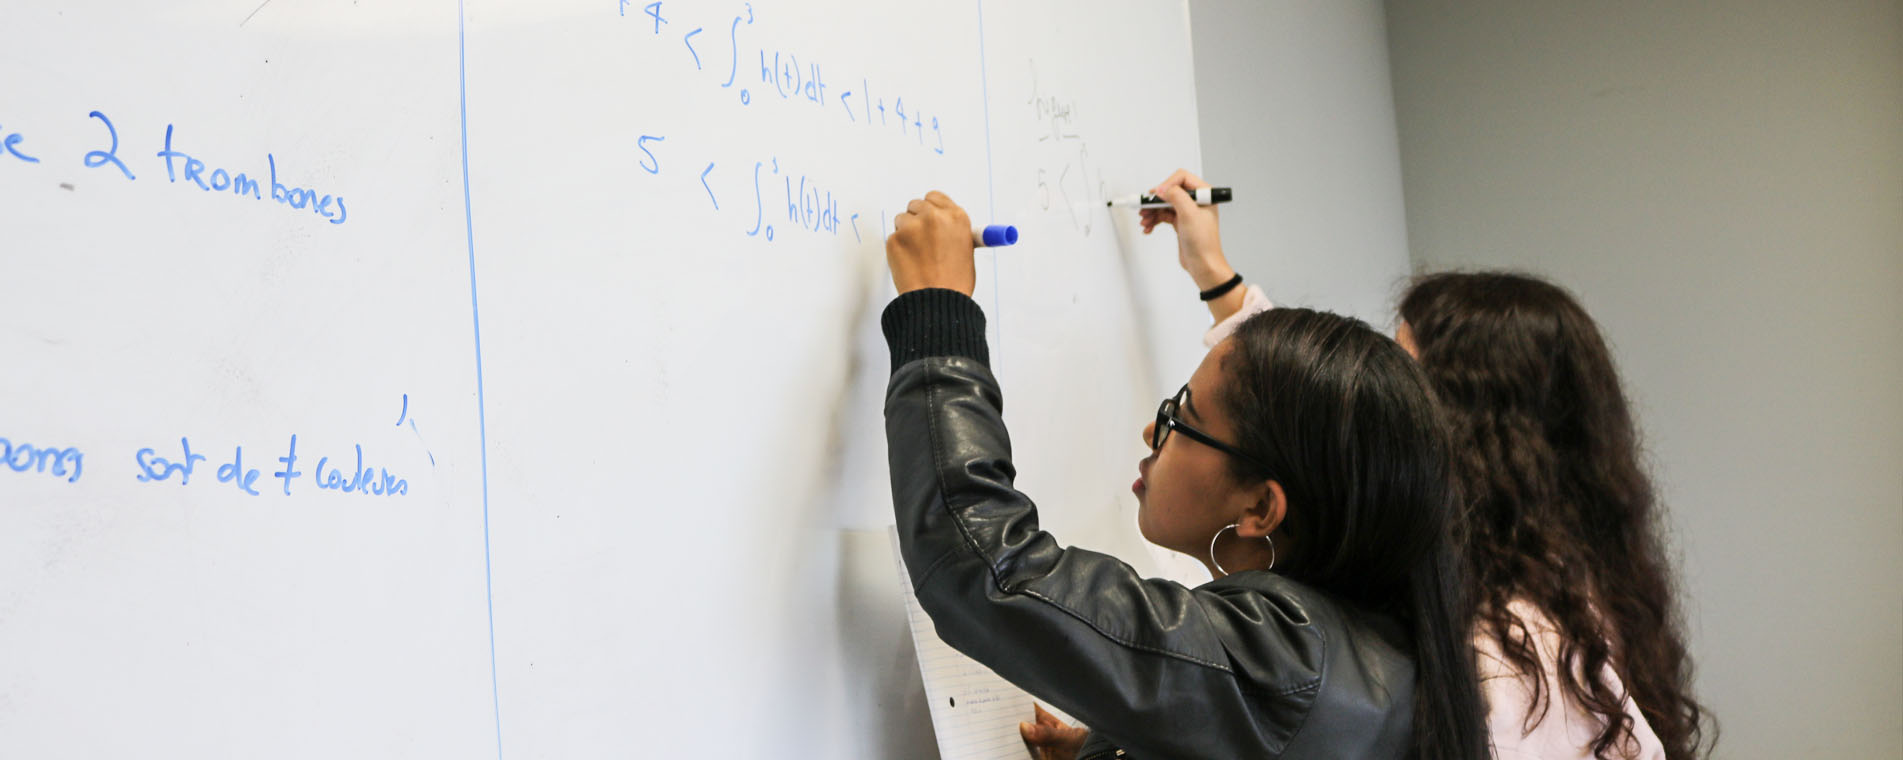 2 trombones
sont de ≠ couleurs
4 < ∫₀³ h(t)dt < 1+4+9
5 < ∫₀³ h(t)dt <
5 < ∫